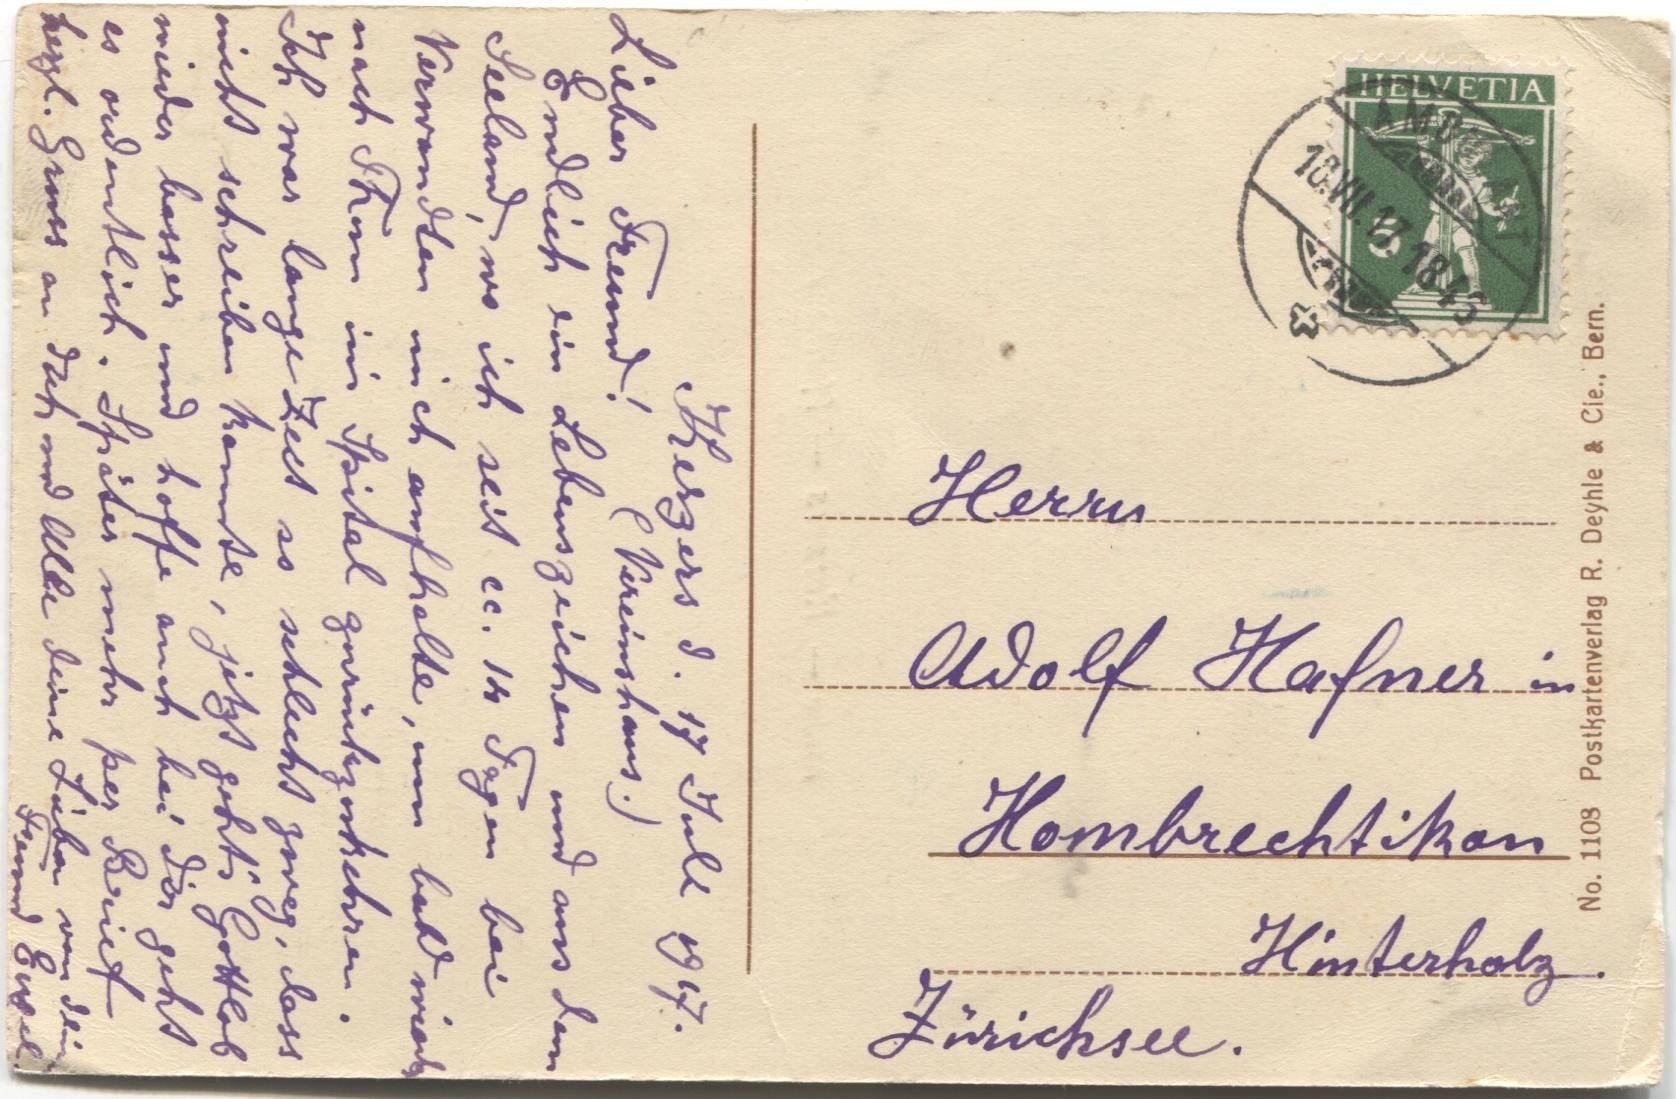 Kerzers d. 17 Juli 1917.
(Vereinshaus.)
Lieber Freund!
Endlich ein Lebenszeichen und aus dem
Seeland, wo ich seit cc. 14 Tagen bei
Verwandten mich aufhalte, um bald wieder
nach Thun im Spital zurückzukehren.
Ich war lange Zeit so schlecht zweg, dass
nicht schreiben konnte, jetzt geht's Gottlob
wieder besser und hoffe auch bei Dir geht
es ordentlich. Später mehr per Brief
herzl. Gruss an dich und Alle deine Lieben von dein
Freund
HELVETIA
5
AMBULANT
18.VII.17. 1846
Herrn
Adolf Hafner in
Hombrechtikon
Hinterholz.
Zürichsee.
No. 1108 Postkartenverlag R. Deyhle & Cie., Bern.